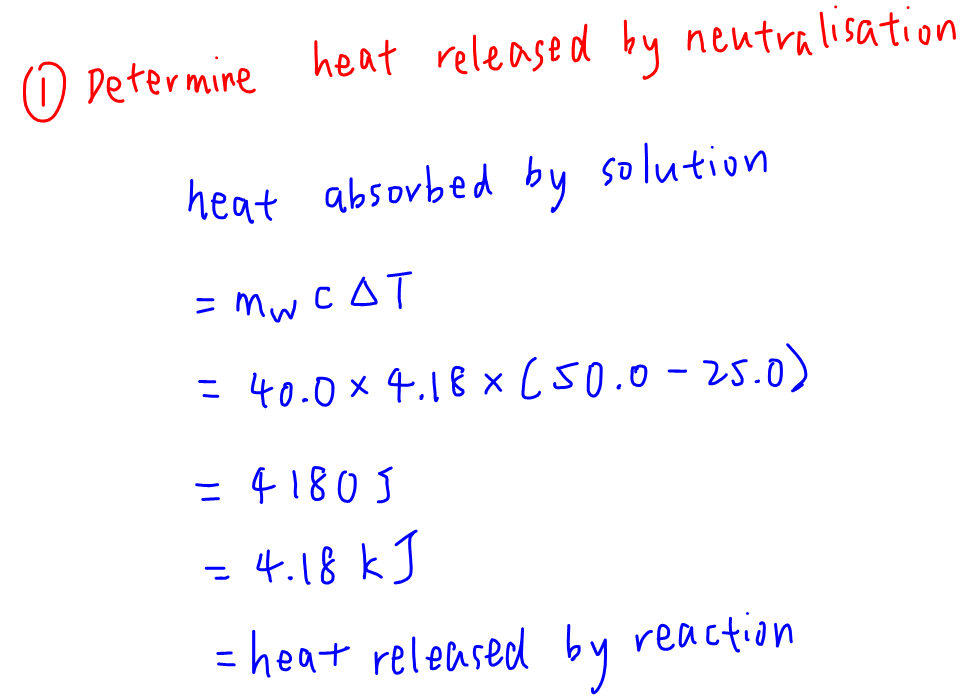 ① Determine heat released by neutralisation
heat absorbed by solution
= mw c △T
= 40.0 × 4.18 × (50.0 - 25.0)
= 4180 J
= 4.18 kJ
= heat released by reaction